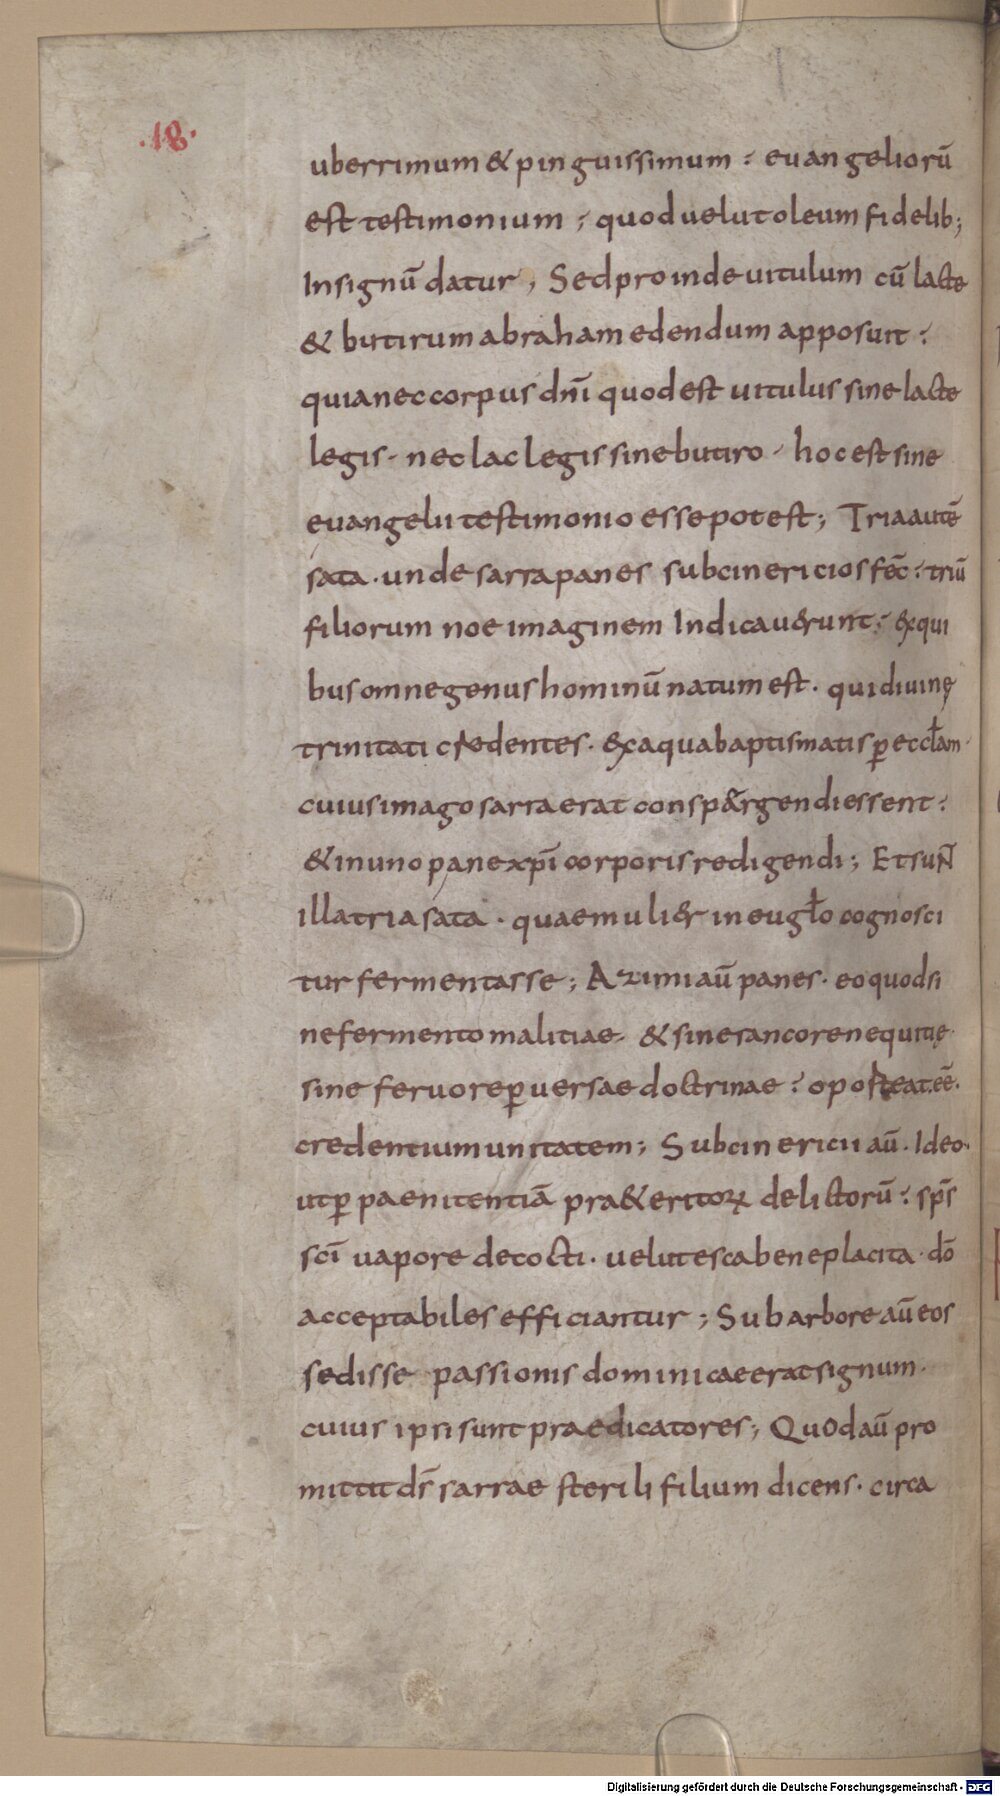 .18.
uberrimum & pinguissimum : euangeliorū
est testimonium ; quod uelut oleum fidelib;
Insignū datur, Sed proinde uitulum cū lacte
& butirum abraham edendum apposuit :
quia nec corpus dnī quod est uitulus sine lacte
legis. nec lac legis sine butiro. hoc est sine
euangelii testimonio esse potest; Tria autē
sata. unde sarra panes subcinericios fēc : triū
filiorum noe imaginem Indicau&runt: ex qui
bus omne genus hominū natum est. qui diuinę
trinitati credentes. ex aqua baptismatis ꝑ eccl̄am
cuius imago sarra erat conspargendi essent :
& in uno pane xp̄i corporis redigendi; Et suN̄
illa tria sata. quae muli&r in eugl̄o cognosci
tur fermentasse; Azimi aū panes. eo quod si
ne fermento malitiae. & sine rancore nequitię
sine feruore ꝑuersae doctrinae : oporteat. eē.
credentium unitatem; Subcinericii aū. Ideo.
ut ꝑ paenitentiā pra&eritoꝝ delictorū : sp̄s
scī uapore decocti. uelut esca beneplacita dō
acceptabiles efficiantur; Sub arbore aū eos
sedisse passionis dominicae erat signum.
cuius ipsi sunt praedicatores; Quod aū pro
mittit ds̄ sarrae sterili filium dicens. circa
Digitalisierung gefördert durch die Deutsche Forschungsgemeinschaft - DFG